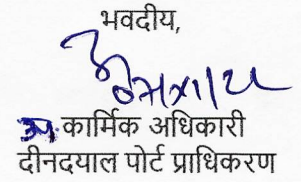 भवदीय,
उप कार्मिक अधिकारी
दीनदयाल पोर्ट प्राधिकरण